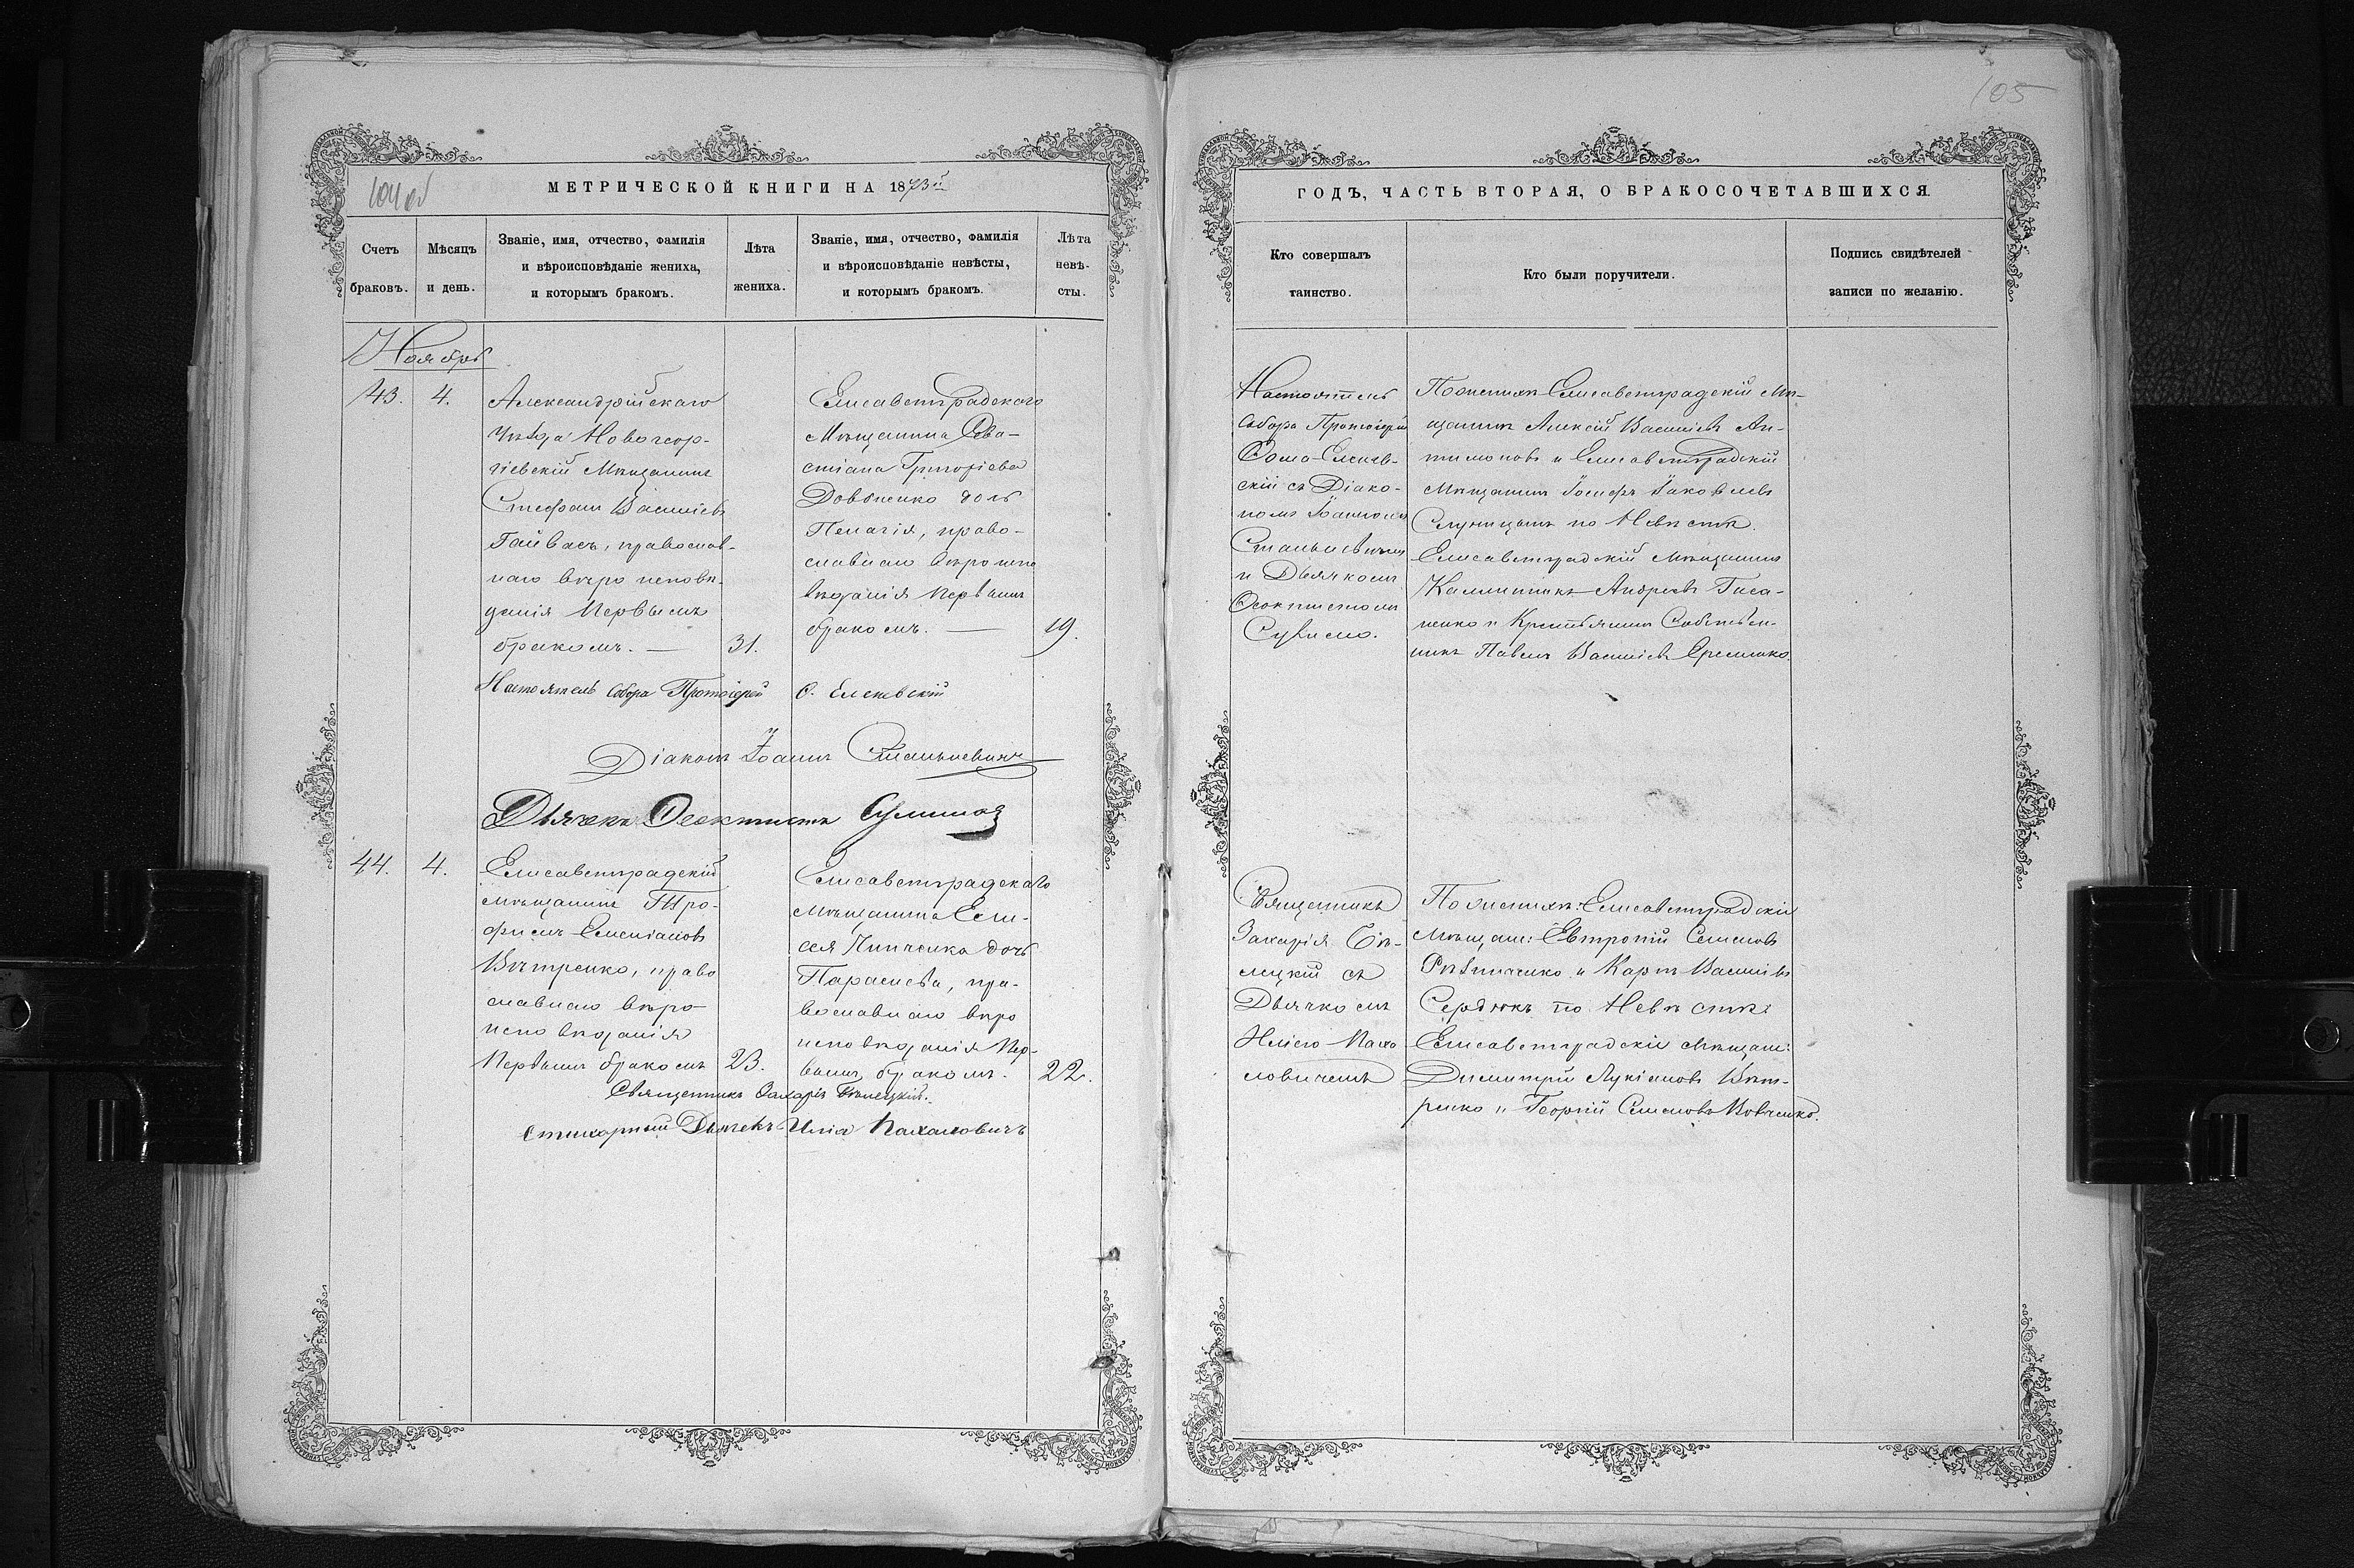 105
104 об
МЕТРИЧЕСКОЙ КНИГИ НА 1873й
ГОДЪ, ЧАСТЬ ВТОРАЯ, О БРАКОСОЧЕТАВШИХСЯ
Счетъ
браковъ.
Мѣсяцъ
и день.
Званіе, имя, отчество, фамилія
и вѣроисповѣданіе жениха,
и которымъ бракомъ.
Лѣта
жениха.
Званіе, имя, отчество, фамилія
и вѣроисповѣданіе невѣсты,
и которымъ бракомъ.
Лѣта
невѣ-
сты.
Кто совершалъ
таинство.
Кто были поручители.
Подпись свидѣтелей
записи по желанію.
Ноябрь
43.
4.
Александрійскаго
уѣзда Новогеор-
гіевскій Мѣщанинъ
Стефанъ Васильевъ
Гайвасъ, православ-
наго вѣроисповѣ-
данія первымъ
бракомъ. —
31.
Елисаветградскаго
Мѣщанина Сева-
стіана Григоріева
Довбненко дочь
Пелагія, право-
славнаго вѣроиспо
вѣданія первымъ
бракомъ. —
19.
Настоятель
Собора Протоіерей
Фома Еленев-
скій съ Діако-
номъ Іоанномъ
Станкевичемъ
и Дьячкомъ
Ѳеоктистомъ
Сулимо.
По женихѣ Елисаветградскій Мѣ-
щанинъ Алексій Васильевъ Ан-
тимоновъ и Елисаветградскій
Мѣщанинъ Іосифъ Іаковлевъ
по Невѣстѣ.
Елисаветградскій Мѣщанинъ
Каллиникъ Андреевъ
и Крестьянинъ Собствен-
никъ Павелъ Васильевъ Еременко.
Настоятель Собора Протоіерей Ѳ. Еленевскій
Діаконъ Іоаннъ Станкевичъ
Дьячекъ Ѳеоктистъ Сулима
44.
4.
Елисаветградскій
мѣщанинъ Тро-
фимъ Емеліановъ
Вѣтренко, право
славнаго вѣро-
исповѣданія
первымъ бракомъ
23.
Елисаветградскаго
Мѣщанина Ели-
сея Пипченка дочь
Параскева, пра-
вославнаго вѣро
исповѣданія пер-
вымъ бракомъ.
22.
Священникъ
Захарія Бѣ-
лецкій съ
Дьячкомъ
Иліею Пахо
ловичемъ
По женихѣ: Елисаветградскіе
Мѣщане: Евтропій Семеновъ
и Карпъ Васильевъ
Сердюкъ по Невѣстѣ:
Елисаветградскіе Мѣщане:
Димитрій Лукіановъ Вѣт-
ренко и Георгій Семеновъ Вовченко.
Священникъ Захарія Бѣлецкій.
Стихарный Дьячекъ Илія Пахаловичъ